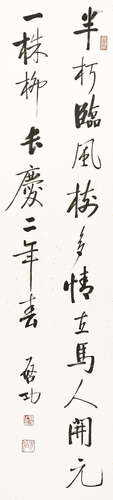 半朽臨風樹多情立馬人開元
一株柳長慶二年春 啓功